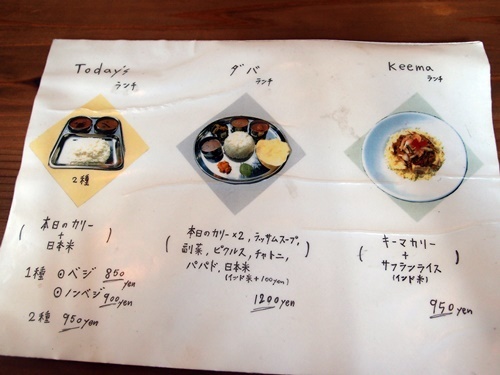 Today's
ランチ
2種
(本日のカリー
+
日本米)
1種 ⊙ベジ 850yen
⊙ノンベジ 900yen
2種 950yen
ダバ
ランチ
(本日のカリー×2, ラッサムスープ,
副菜, ピクルス, チャトニ,
パパド, 日本米)
(インド米+100yen)
1200yen
Keema
ランチ
(キーマカリー
+
サフランライス)
(インド米)
950yen